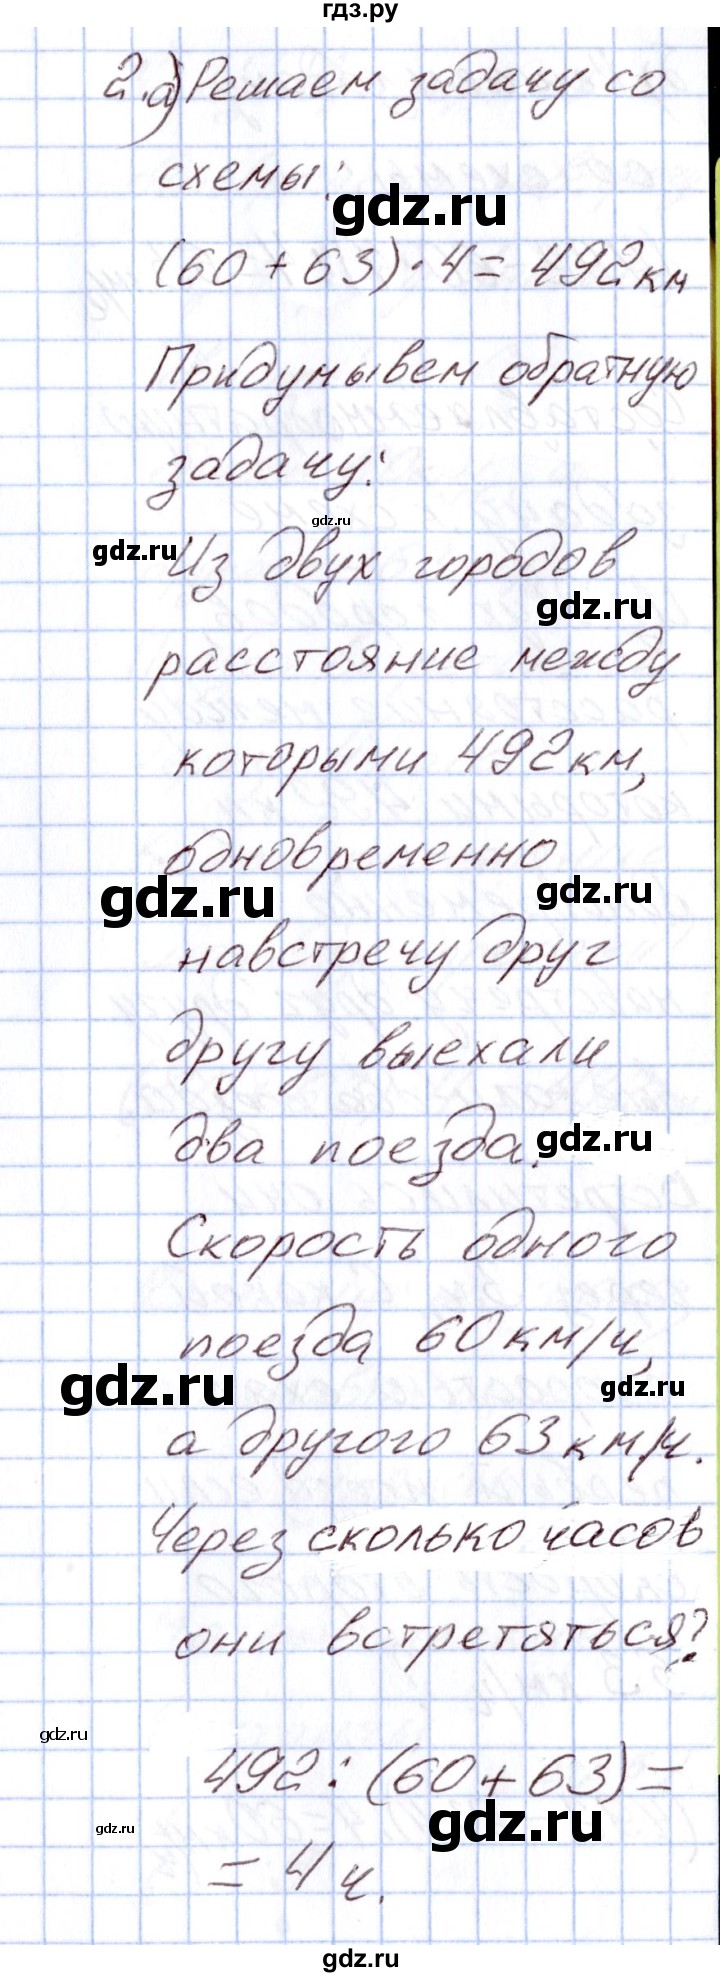 гдз.ру
2.а) Решаем задачу со
схемы:
gdz.ru
(60 + 63) · 4 = 492 км
Придумывем обратную
задачу:
gdz.ru
gdz.ru
Из двух городов
gdz.ru
расстояние между
которыми 492 км,
одновременно
gdz.ru
gdz.ru
навстречу друг
другу выехали
два поезда.
gdz.ru
Скорость одного
поезда 60 км/ч,
gdz.ru
gdz.ru
а другого 63 км/ч.
Через сколько часов
они встретяться?
gdz.ru
492 : (60 + 63) =
gdz.ru
gdz.ru
= 4 ч.
gdz.ru